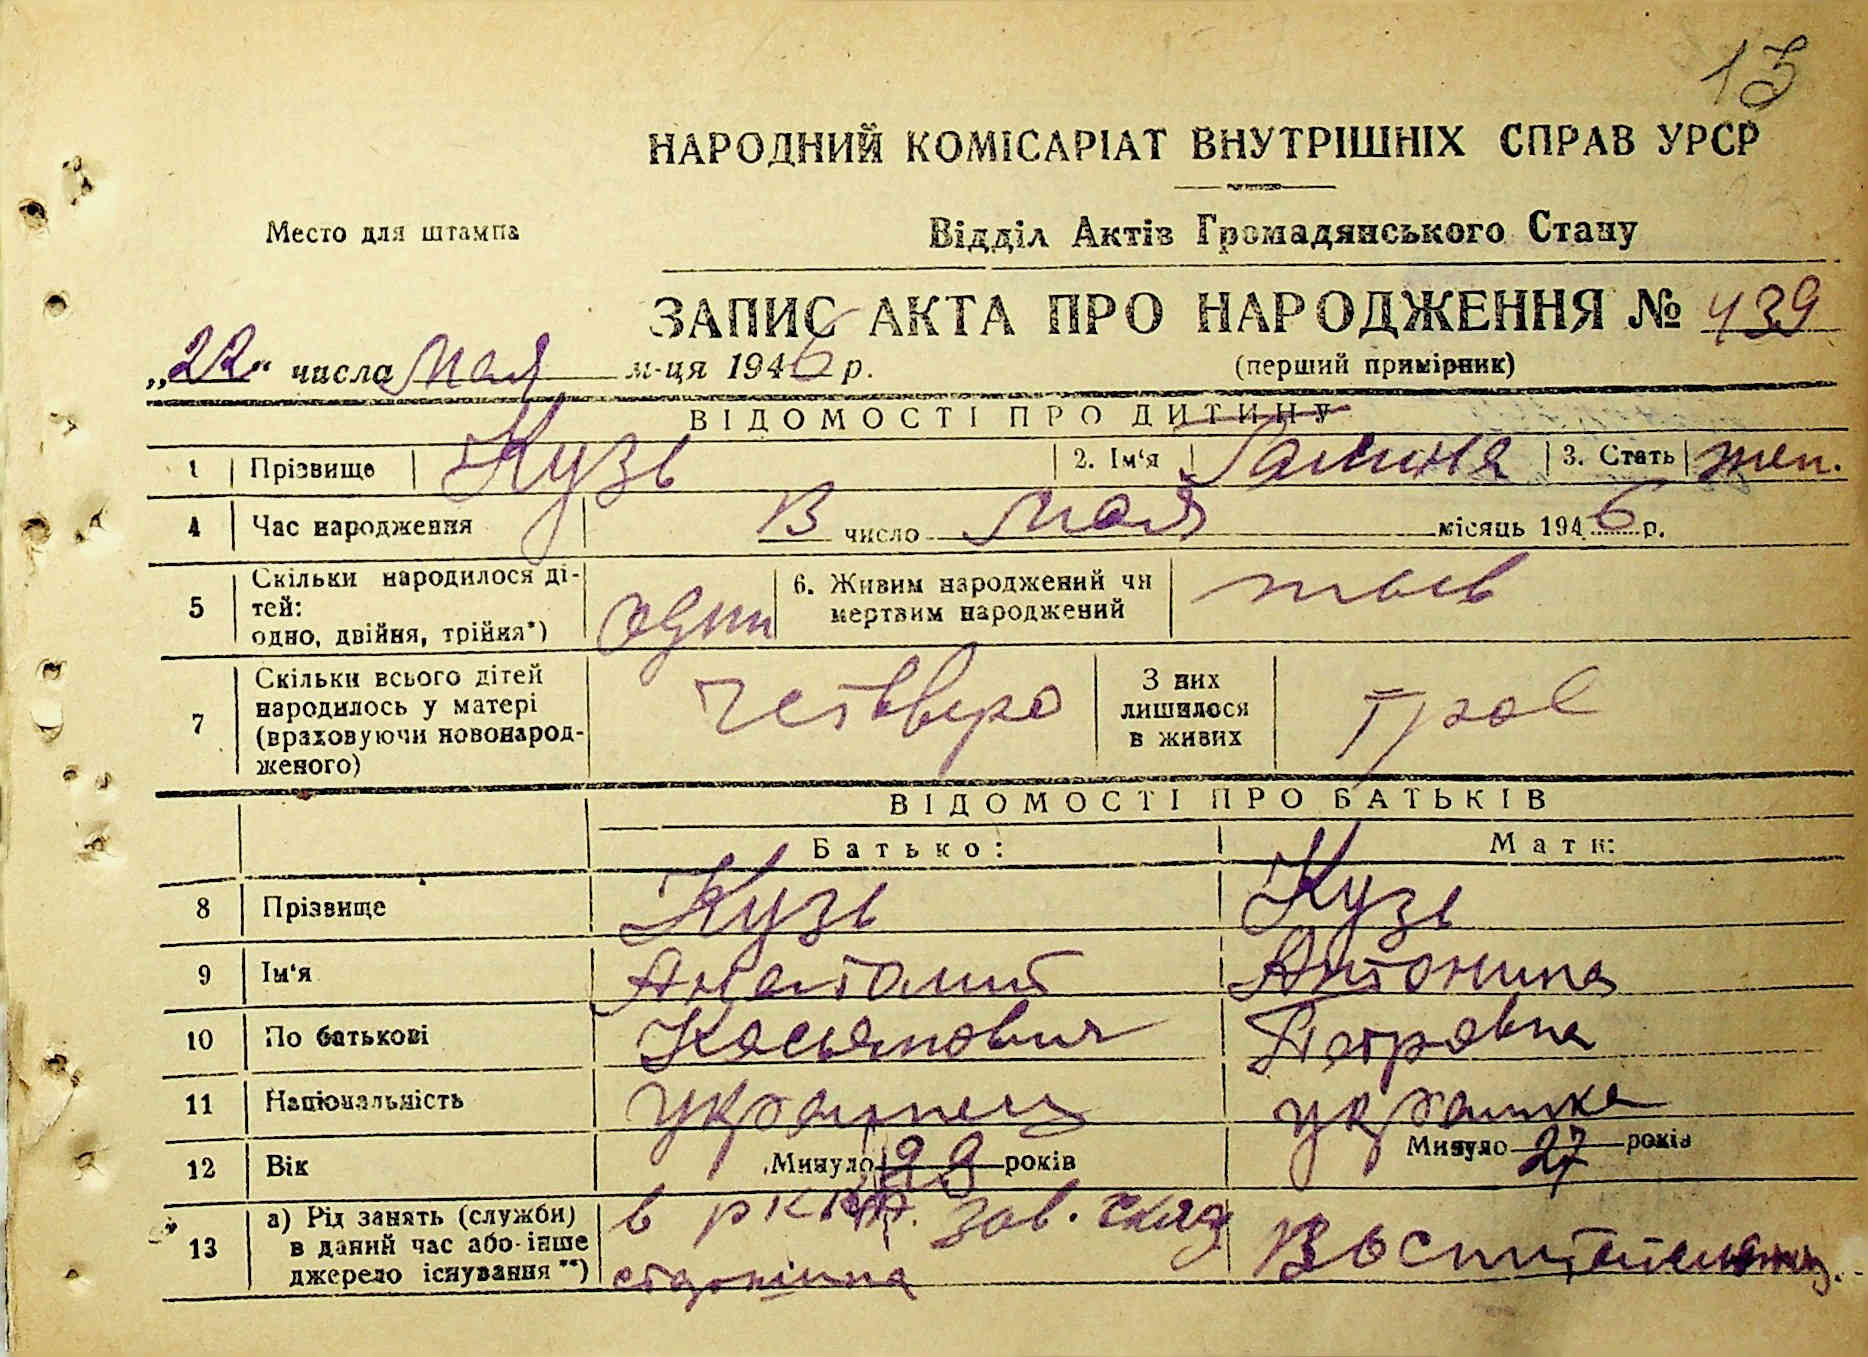 13
НАРОДНИЙ КОМІСАРІАТ ВНУТРІШНІХ СПРАВ УРСР
Место для штампа
Відділ Актів Громадянського Стану
ЗАПИС АКТА ПРО НАРОДЖЕННЯ № 439
„22" числа мая м-ця 1946 р.
(перший примірник)
ВІДОМОСТІ ПРО ДИТИНУ
1 Прізвище Кузь 2. Ім'я Галина 3. Стать жен.
4 Час народження 13 число мая місяць 1946 р.
5 Скільки народилося ді-
тей:
одно, двійня, трійня*) один 6. Живим народжений чи
мертвим народжений
7 Скільки всього дітей
народилось у матері
(враховуючи новонарод-
женого) четверо З них
лишилося
в живих трое
ВІДОМОСТІ ПРО БАТЬКІВ
Батько: Мати:
8 Прізвище Кузь Кузь
9 Ім'я Анатолий Антонина
10 По батькові Касьянович Петровна
11 Національність украинец украинка
12 Вік Минуло років Минуло 27 років
13 а) Рід занять (служби)
в даний час або інше
джерело існування **) в зав. склад
старшина Воспитательниц.